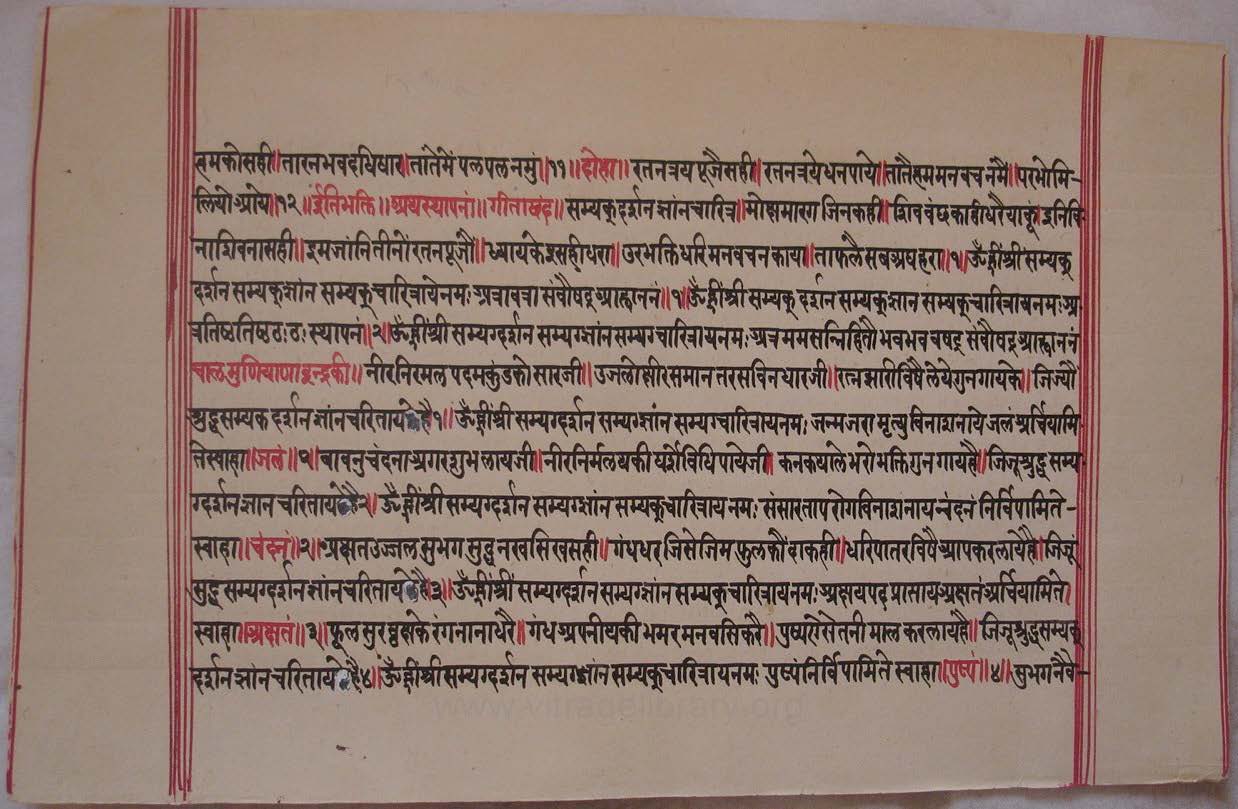 त्रमकोसही॥तारनभवदधिधार॥तातैमें पलपलनमुं॥११॥दोहा॥ रतनत्रय पूजैसही॥रतनत्रयेधनपाये॥तातैत्रममनवचनमैं॥परभोमि-
लियोआये॥१२॥इतिभक्ति॥अथस्थापनां॥गीताछंद॥सम्यक्दर्शन ज्ञांनचारित्र॥मोक्षमारग जिनकही॥शिववंछकाहीधरैयाकूं॥इनिवि-
नाशिवनासही॥इमजांनितीनोंरतनपूजौं॥ध्यायकेइसहीधरा॥उरभक्तिधरिमनवचनकाया॥ताफलैसबअघहरा॥१॥ॐह्रींश्रीं सम्यक्
दर्शन सम्यक्ज्ञांन सम्यक्चारित्रायेनमः अत्रावत्रा संवौषट् आह्वाननं॥१॥ॐह्रींश्री सम्यक् दर्शन सम्यक्ज्ञान सम्यक्चारित्रायनमः अ-
त्रतिष्ठतिष्ठठःठः स्थापनं॥२॥ॐह्रींश्री सम्यग्दर्शन सम्यग्ज्ञांन सम्यग्चारित्रायनमः अत्रममसन्निहितौ भवभववषट् संवौषट् आह्वाननं
चालमुणियाणाइन्द्रकी॥ नीरनिरमल पदमकुंडको सारजी॥उजलोक्षीरसमान तरसविनधारजी॥रत्नझारीविषैलेयेगुनगायके॥जिज्यौं
शुद्धसम्यक दर्शन ज्ञांनचरिताय है१॥ॐह्रींश्री सम्यग्दर्शन सम्यग्ज्ञांन सम्यग्चारित्रायनमः जन्मजरा मृत्यु विनाशनाये जलं अर्चियामि-
तेस्वाहा॥जलं॥१॥बावनुचंदना अगरशुभलायजी॥नीरनिर्मलथकी घर्शोविधिपायेजी॥ कनकथालेभरोभक्तिगुनगायहै॥जिजूशुद्ध सम्य-
ग्दर्शनज्ञान चरिताय है२॥ ॐह्रींश्री सम्यग्दर्शन सम्यग्ज्ञांन सम्यक्चारित्रायनमः संसारतापरोगविनाशनाय चंदनं निर्विपामिते-
स्वाहा॥चंदनं॥२॥ अक्षतउज्जल सुभग सुद्ध नखसिखसही॥ गंधधर जिसेजिम फुलकौंदाकही॥धरिपातरविषैआपकरलायेहै॥जिजूं
सुद्ध सम्यग्दर्शन ज्ञांनचरिताय है३॥ॐह्रींश्रीं सम्यग्दर्शन सम्यग्ज्ञांन सम्यक्चारित्रायनमः अक्षयपद प्राप्ताय अक्षतं अर्चियामिते।
स्वाहा॥अक्षतं॥३॥ फूल सुरवृक्षके रंगनानाधरै॥ गंध अपनीयकी भमरमनवसिकरै॥पुष्पऐसेतनी मालकरलायहै॥जिजूशुद्धसम्यक्
दर्शन ज्ञांन चरिताय है४॥ॐह्रींश्री सम्यग्दर्शन सम्यग्ज्ञांन सम्यक्चारित्रायनमः पुष्पंनिर्विपामिते स्वाहा॥पुष्पं॥४॥सुभगनैवे-